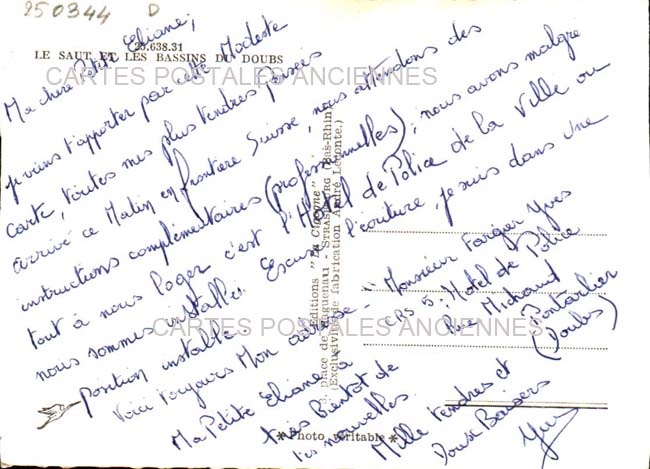 250344 D
25.638.31
LE SAUT ET LES BASSINS DU DOUBS
CARTES POSTALES ANCIENNES
Ma chère Petite Eliane,
je viens t'apporter par cette Modeste
Carte, toutes mes plus tendres pensées
arrivé ce Matin en frontière Suisse, nous attendons des
instructions complémentaires (professionnelles), nous avons malgré
tout à nous loger c'est l'Hôtel de Police de la Ville ou
nous sommes installés. Excuse l'écriture je suis dans une
position instable.
Voici toujours Mon adresse -
"Monsieur Farger Yves
CRS 5. Hotel de Police
Rue Michaud
Pontarlier
(Doubs)
Ma Petite Eliane à
très Bientot de
tes nouvelles
Mille tendres et
Doux Baisers
Yves
Editions "La Cigogne"
place de Haguenau - STRASBOURG (Bas-Rhin)
Exclusivité de fabrication André Leconte.)
CARTES POSTALES ANCIENNES
*Photo véritable*